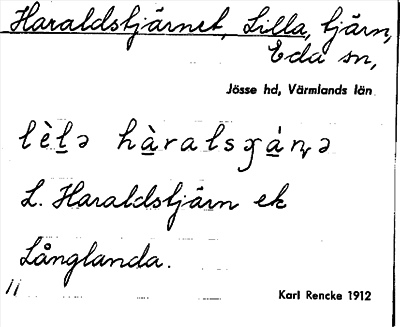 Haraldstjärnet, Lilla, tjärn,
Eda sn,
Jösse hd, Värmlands län
lèlə hàralsɡáɳə
L. Haraldstjärn ek
Långlanda.
11
Karl Rencke 1912